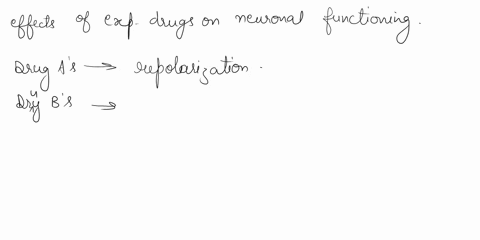 effects of exp. drugs on neuronal functioning.
Drug A's → repolarization.
Drug B's →